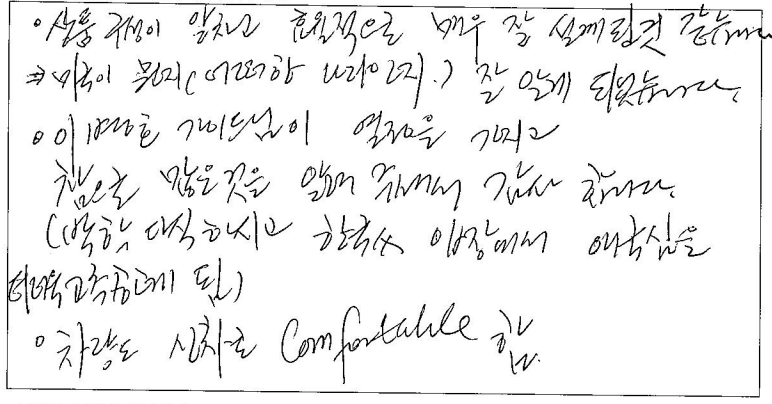 ◦상품 구성이 알차고 효율적으로 매우 잘 설계된것 같습니다
⇒미국이 뭔지(어떠한 나라인지.) 잘 알게 되었습니다.
◦이병호 가이드님이 열정을 가지고
참으로 많은것을 알려 주셔서 감사 합니다.
(박학 다식 하시고 한국人 입장에서 애국심을
더더욱 고취 하게 됨)
◦차량도 신차로 Comfortable 함.